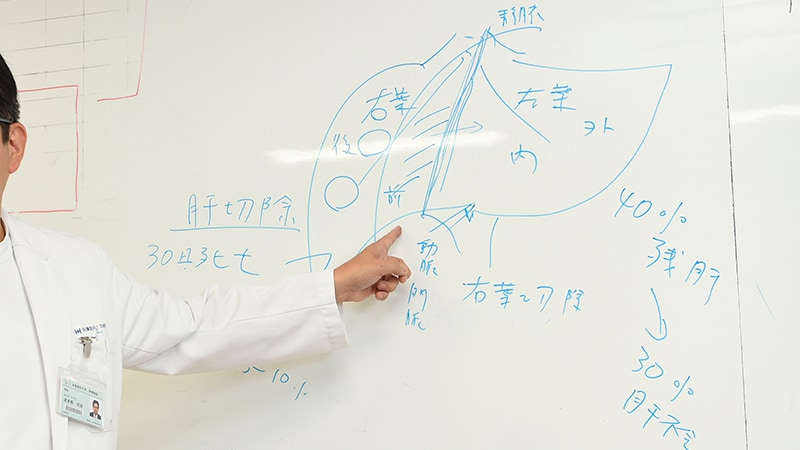 静脈
右葉
左葉
外
後
内
前
肝切除
30日死亡
動脈
門脈
右葉切除
40%
残肝
30%
肝不全
~10%